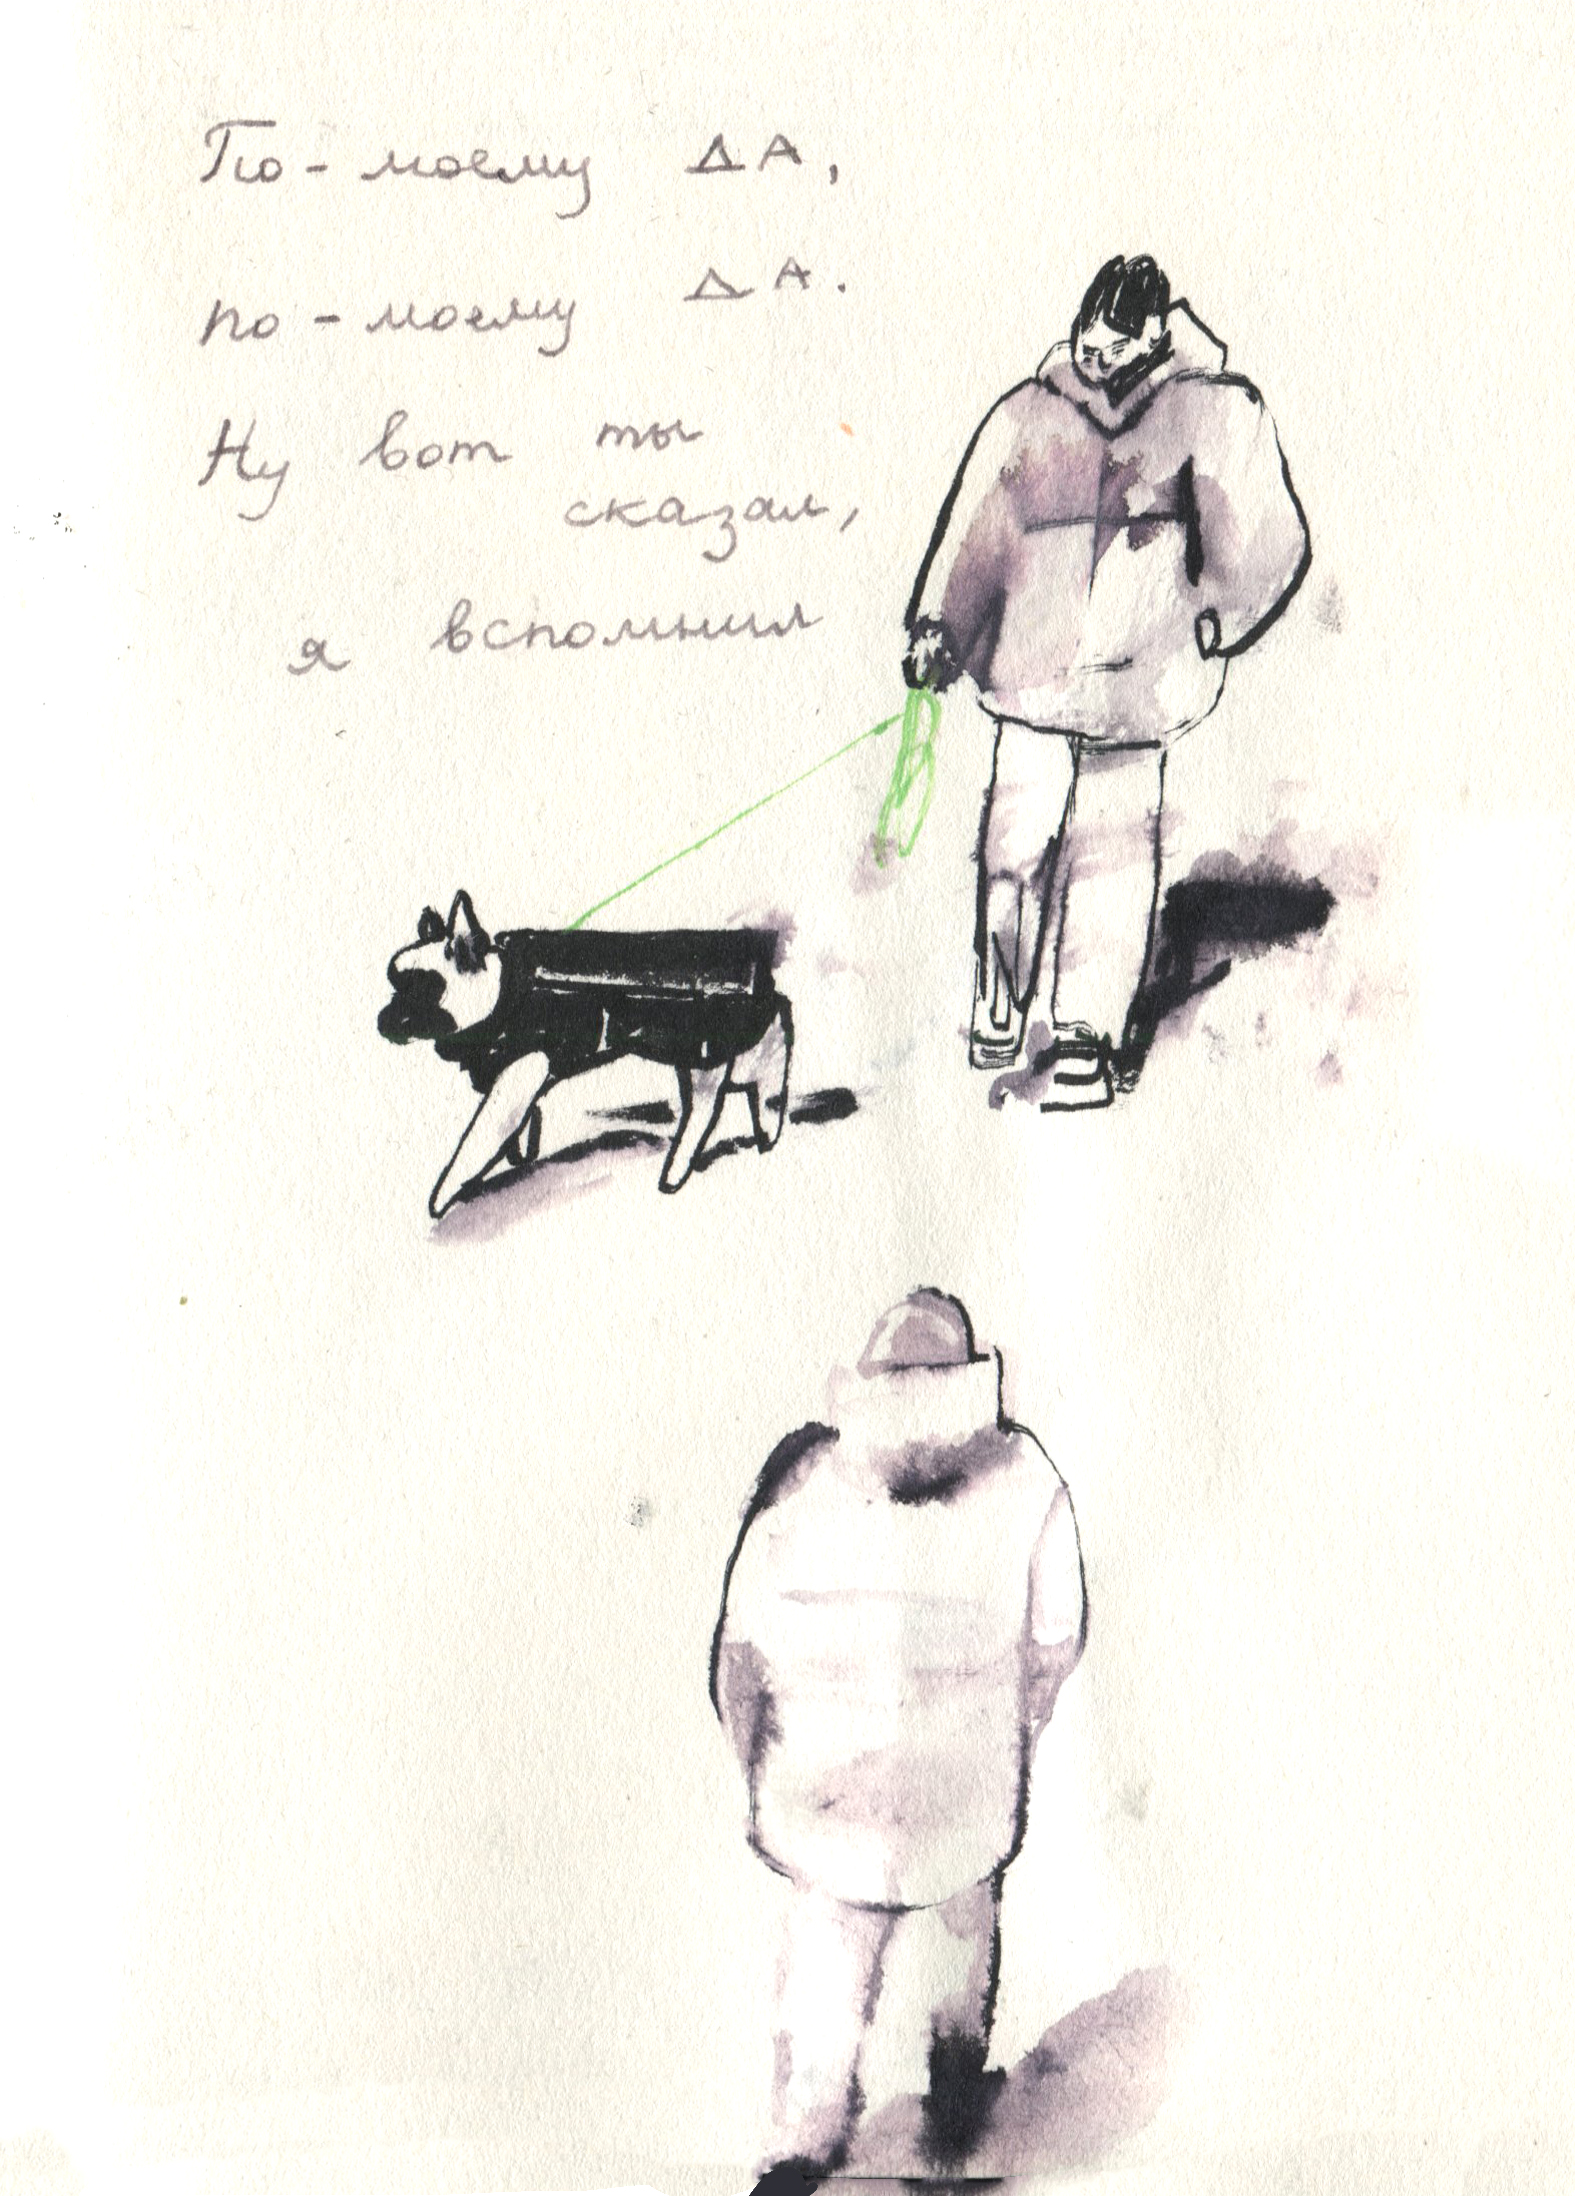 По-моему ДА,
по-моему ДА.
Ну вот ты
сказал,
я вспомнил